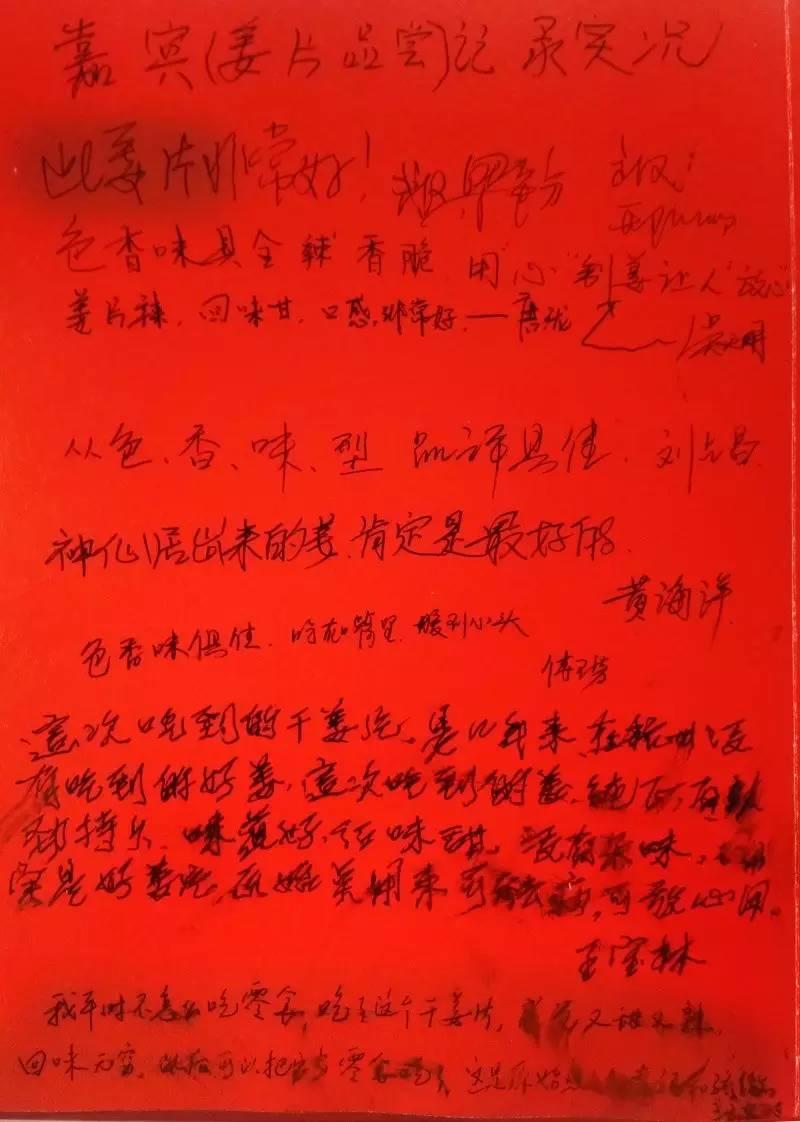 嘉宾(姜片品尝)记录实况
此姜片非常好!
色香味具全 辣 香脆 用"心"制姜让人"放心"
姜片辣、回味甘、口感非常好。——唐
从色、香、味、型 品评具佳. 刘
神仙居出来的姜.肯定是最好的.
黄海洋
色香味俱佳. 吃在嘴里 暖到心头
傅
這次吃到的干姜片,是几年来在杭州没
有吃到的好姜,這次吃到的姜,纯正,有
劲持久 味道好,回味甜 没有杂味,
是好姜片,用来可 病,可放心用。
王宝林
我平时不怎么吃零食,吃了这个干姜片,又甜又辣,
回味无穷,以后可以把它当零食吃, 这是原始